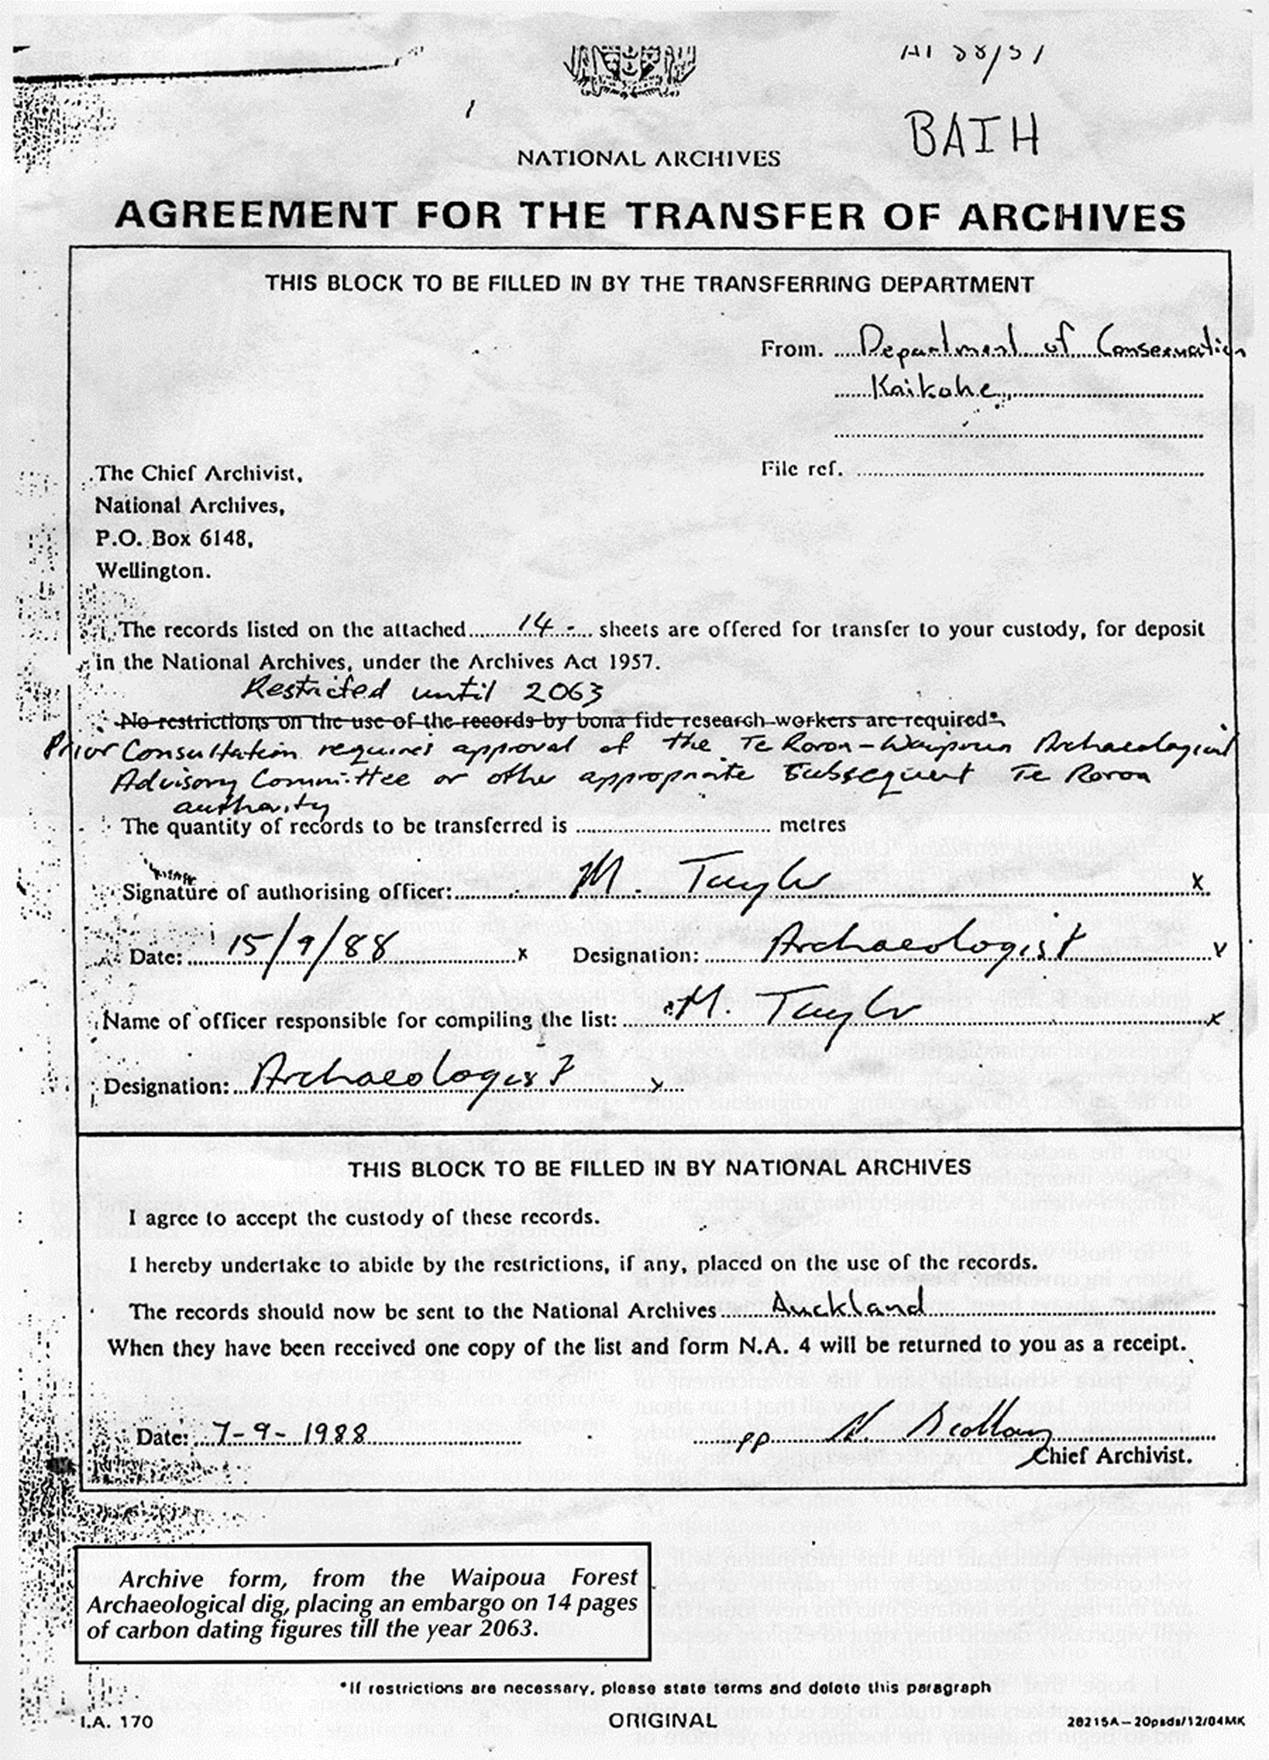 BAIH
NATIONAL ARCHIVES
AGREEMENT FOR THE TRANSFER OF ARCHIVES
THIS BLOCK TO BE FILLED IN BY THE TRANSFERRING DEPARTMENT
From. Department of Conservation
Kaikohe
File ref.
The Chief Archivist,
National Archives,
P.O. Box 6148,
Wellington.
The records listed on the attached 14 - sheets are offered for transfer to your custody, for deposit
in the National Archives, under the Archives Act 1957.
Restricted until 2063
No restrictions on the use of the records by bona fide research workers are required*.
Prior Consultation requires approval of the Te Roroa-Waipoua Archaeological
Advisory Committee or other appropriate subsequent Te Roroa
authority
The quantity of records to be transferred is metres
Signature of authorising officer: M. Taylor x
Date: 15/9/88 x Designation: Archaeologist x
Name of officer responsible for compiling the list: M. Taylor x
Designation: Archaeologist x
THIS BLOCK TO BE FILLED IN BY NATIONAL ARCHIVES
I agree to accept the custody of these records.
I hereby undertake to abide by the restrictions, if any, placed on the use of the records.
The records should now be sent to the National Archives Auckland
When they have been received one copy of the list and form N.A. 4 will be returned to you as a receipt.
Date: 7-9-1988 pp
Chief Archivist.
Archive form, from the Waipoua Forest
Archaeological dig, placing an embargo on 14 pages
of carbon dating figures till the year 2063.
*If restrictions are necessary, please state terms and delete this paragraph
I.A. 170 ORIGINAL 28215A—20pads/12/84MK